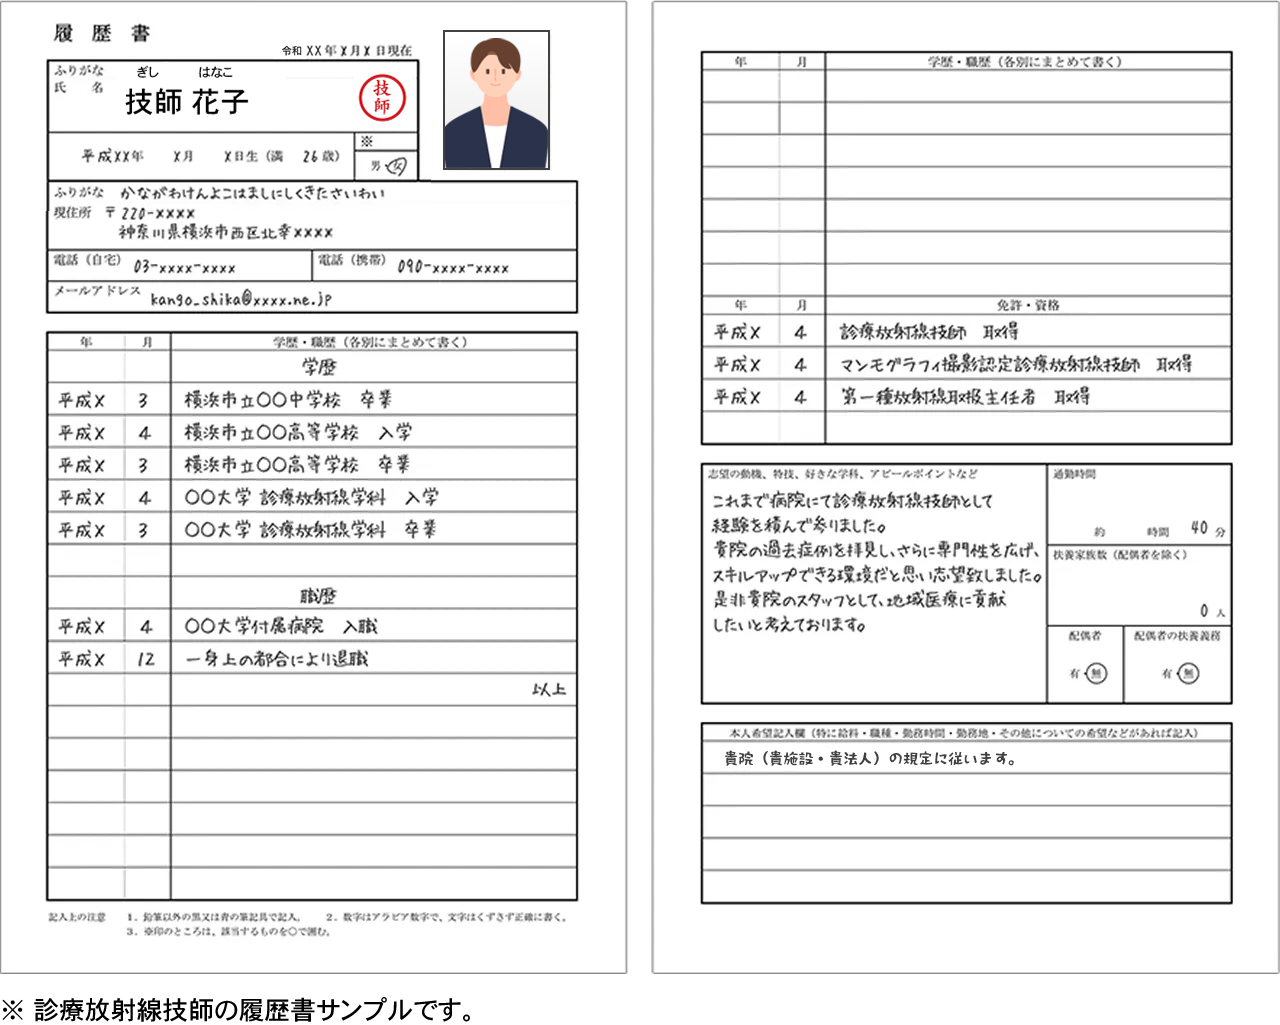 履 歴 書
令和 XX 年 X 月 X 日現在
ふりがな ぎし はなこ
氏 名 技師 花子
技師
平成XX年 X月 X日生（満 26歳）
※
男・女
ふりがな かながわけんよこはましにしくきたさいわい
現住所 〒220-xxxx
神奈川県横浜市西区北幸xxxx
電話（自宅） 03-xxxx-xxxx 電話（携帯） 090-xxxx-xxxx
メールアドレス kango_shika@xxxx.ne.jp
年 月 学歴・職歴（各別にまとめて書く）
学歴
平成X 3 横浜市立〇〇中学校 卒業
平成X 4 横浜市立〇〇高等学校 入学
平成X 3 横浜市立〇〇高等学校 卒業
平成X 4 〇〇大学 診療放射線学科 入学
平成X 3 〇〇大学 診療放射線学科 卒業
職歴
平成X 4 〇〇大学付属病院 入職
平成X 12 一身上の都合により退職
以上
記入上の注意 1．鉛筆以外の黒又は青の筆記具で記入。 2．数字はアラビア数字で、文字はくずさず正確に書く。
3．※印のところは、該当するものを〇で囲む。
年 月 学歴・職歴（各別にまとめて書く）
年 月 免許・資格
平成X 4 診療放射線技師 取得
平成X 4 マンモグラフィ撮影認定診療放射線技師 取得
平成X 4 第一種放射線取扱主任者 取得
志望の動機、特技、好きな学科、アピールポイントなど
これまで病院にて診療放射線技師として
経験を積んで参りました。
貴院の過去症例を拝見し、さらに専門性を広げ、
スキルアップできる環境だと思い志望致しました。
是非貴院のスタッフとして、地域医療に貢献
したいと考えております。
通勤時間
約 時間 40 分
扶養家族数（配偶者を除く）
0 人
配偶者 配偶者の扶養義務
有・無 有・無
本人希望記入欄（特に給料・職種・勤務時間・勤務地・その他についての希望などがあれば記入）
貴院（貴施設・貴法人）の規定に従います。
※ 診療放射線技師の履歴書サンプルです。